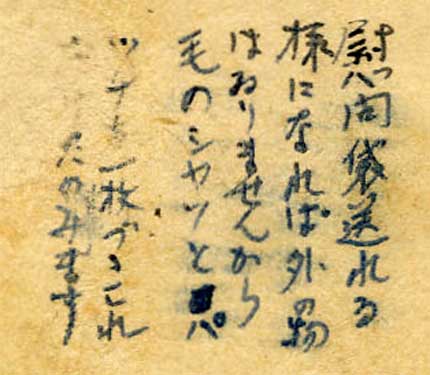 慰問袋送れる
様になれば外の物
はゐりませんから
毛のシヤツとパ
ツチを一枚づゝこれ
たのみます